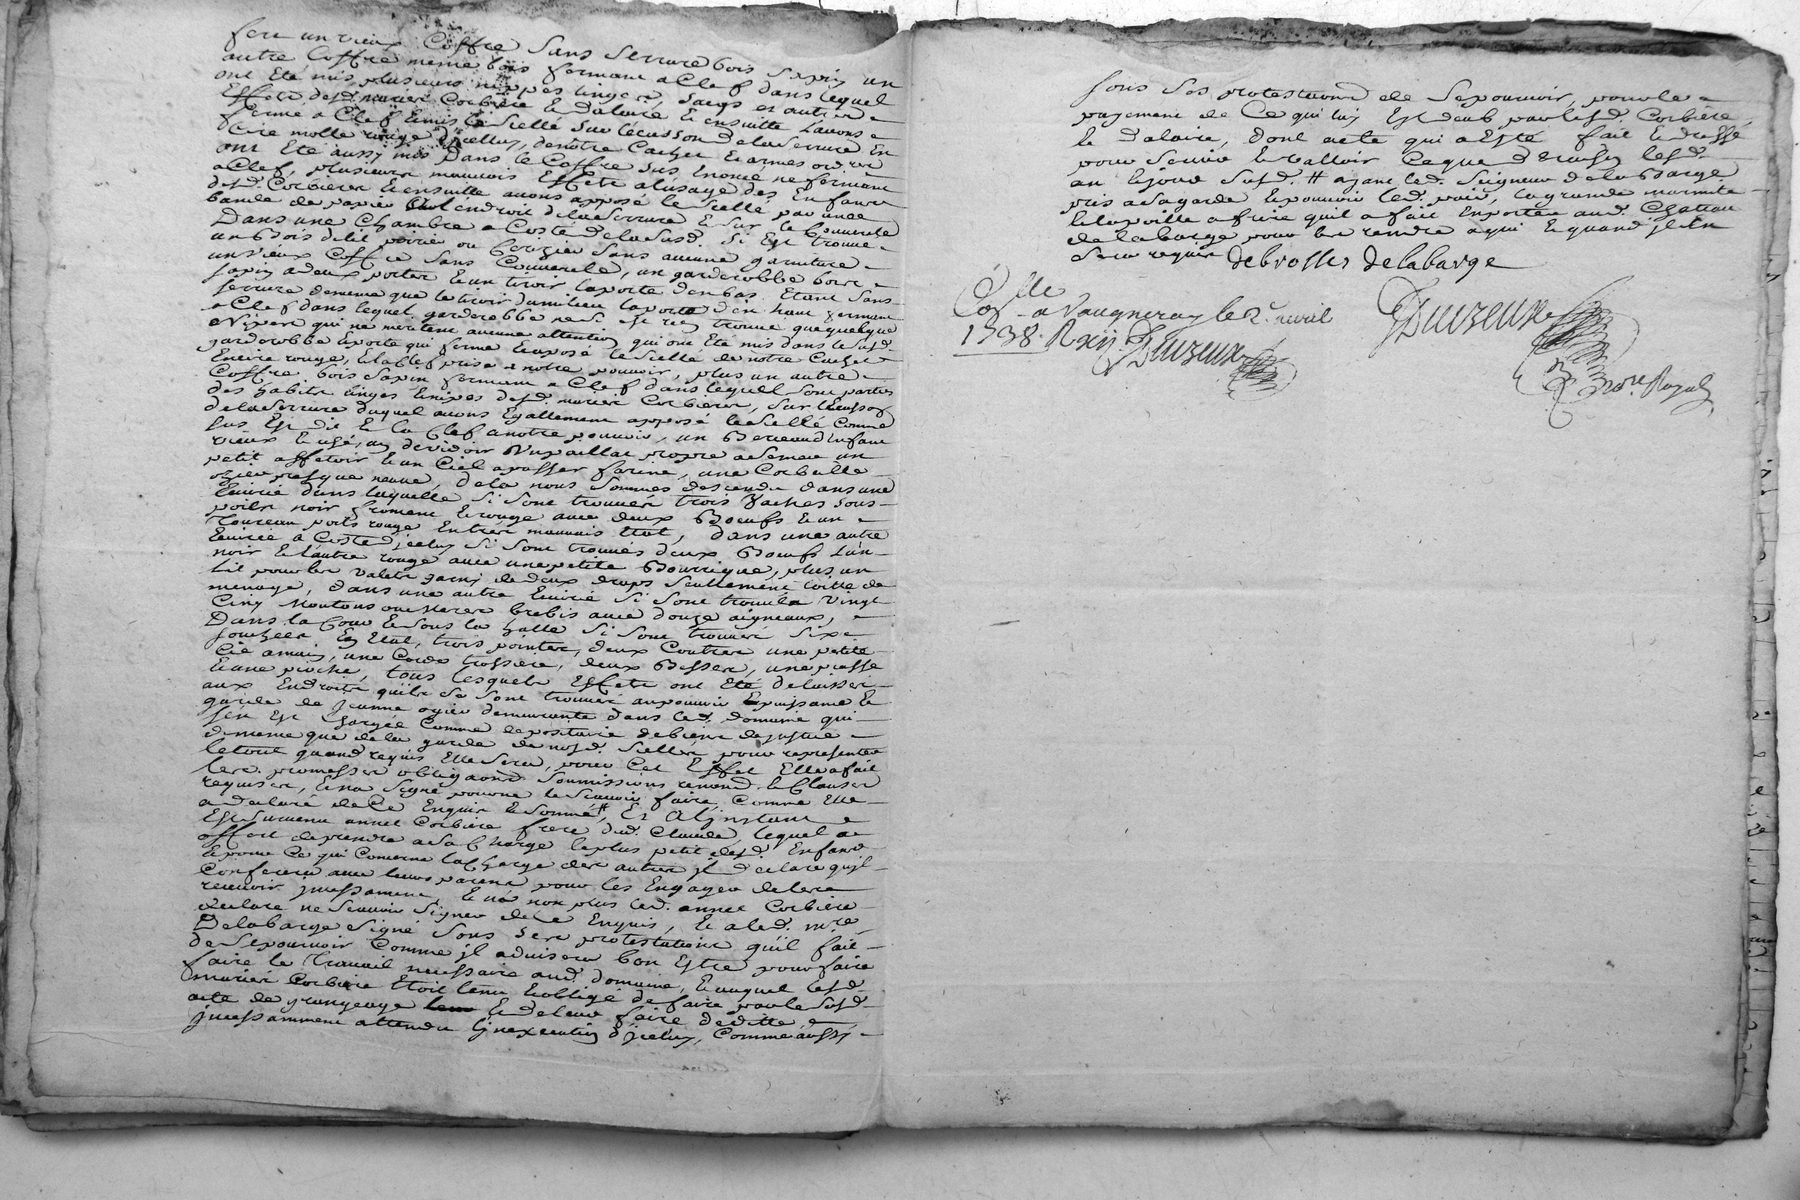 fere un vieux Coffre Sans Serrure bois Sapin un
autre Coffre meme bois fermant a Clef dans lequel
ont Eté mis plusieurs nippes linges Sacqs et autres
Effets desd. mariés Corbiere & Dalaire & ensuitte Lavons
fermé a Clef & mis le Scellé Sur lécusson dela Serrure En
Cire molle rouge d'icelluy, denotre Cachet & armes ordres
ont Eté aussy mis Dans le Coffre Sus Enoncé ne fermant
a Clef, plusieurs mauvais Effets alusage des Enfants
desd. Corbieres & ensuitte avons apposé le Scellé par une
bande de papier a lendroit dela Serrure & Sur le Couvercle
Dans une Chambre a Costé de la Susd. Si Est trouvé
un Bois de lit poirier ou Cerizier Sans aucune garniture
un vieux Coffre Sans Couvercle, un garderobbe bois
Sapin a deux portes & un tiroir laporte denbas Etant Sans
Serrure dememe que le tiroir dumilieu laporte den haut fermant
a Clef dans lequel garderobbe ne S. Est rien trouvé que quelque
Nipes qui ne meritent aucune attention qui ont Eté mis dans le Susd.
garderobbe & porte qui ferme & apposé le Scellé de notre Cachet
Encire rouge, & la Clef prise a notre pouvoir, plus un autre
Coffre bois Sapin fermant a Clef dans lequel Sont partie
des habits linges & nipes desd. mariés Corbieres, Sur lécusson
dela Serrure duquel avons Egallement apposé le Scellé Comme
Sus Est dit & la Clef anotre pouvoir, un Berceau d'Enfant
vieux & usé, un devidoir Un paillat propre a Semer un
petit assetoir & un Ciel a passer farine, une Corbeille
ozier presque neuve, dela nous Sommes descendu Dans une
Ecurie dans laquelle Si Sont trouvés trois Vaches Sous
poils noir froment & rouge avec deux Boeufs & un
Toureau poils rouge En tres mauvais Etat, dans une autre
Ecurie a Costé d'icelluy Si Sont trouvés deux Boeufs L'un
noir & l'autre rouge avec une petite Bourrique, plus un
Lit pour les valets garny de deux draps Seullement toille de
menage, dans une autre Ecurie Si Sont trouvés vingt
Cinq Moutons ou Meres brebis avec douze aigneaux,
Dans la Cour & Sous la halle Si Sont trouvés Six
En Etat, trois pointes, deux Coutres une petite
Cie a main, une Corde trossiere, deux Besses, une
& une pioche, tous lesquels Effets ont Eté delaissés
aux Endroits quils Se Sont trouvés aupouvoir & puissance &
garde de Jeanne ogier demeurante dans led. domaine qui
Sen Est Chargée Comme depositaire debiens dejustice
dememe que dela garde de nosd. Scellés pour representer
letout quand requis Elle Sera, pour Cet Effet Elle a fait
les. promesses obligaons Soumissions renond. & Clauses
requises, & na Signé pour ne le Scavoir faire Comme Elle
a declaré de Ce Enquise & Sommée # Et A l'instant
Est Survenu annet Corbiere frere dud. Claude lequel a
offert de prendre a Sa Charge le plus petit desd. Enfants
& pour Ce qui Concerne la Charge des autres jl declare qu'jl
Conferera avec leurs parens pour les Engager de les
recevoir jncessament. & na non plus led. annet Corbiere
declaré ne Scavoir Signer de Ce Enquis, & a led. Mre.
Delabarge Signé Sous Ses protestations qu'il fait
de Se pourvoir Comme jl advisera bon Estre pour faire
faire le Travail necessaire aud. domaine, & auquel lesd.
mariés Corbiere Etoit tenu & obligé de faire par le Susd.
acte de grangeage & de leur faire deditte
jncessamment attendu l'jnexecution d'jceluy, Comme aussy
Sous Ses protestations de Se pourvoir, pour le
payement de Ce qui luy Est deub par lesd. Corbiere
& Dalaire, Dont acte qui a Esté fait & dressé
pour Servir & valloir Ceque de raison lesd.
an & jour Susd. # ayant led. Seigneur de la Barge
pris a Sa garde & pouvoir led. poid, la grande marmite
& la poille a frire qu'il a fait Emporter aud. Chateau
de la barge pour les rendre a qui & quand jl En
Sera requis debrosses delabarge
Colle
a Vaugneray le 2e. avril
1738. R xij Duzeux
Duzeux
Nore. Royal